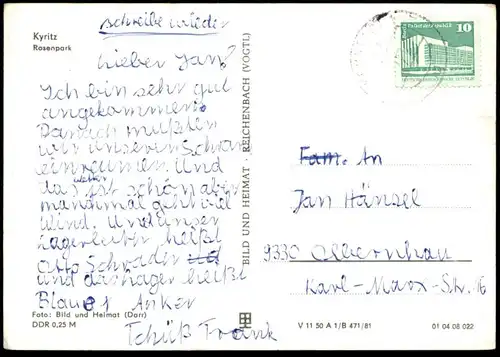 schreibe wieder
Kyritz
Rosenpark
lieber Jan!
Ich bin sehr gut
angekommen.
Danach mußten
wir unseren Schran
einreumen. Und
das wetter ist schön aber
manchmal geht viel
Wind. Und unser
Lagerleiter heißt
Otto Schrader
und das Lager heißt
Blauer Anker
Tchüß Frank
Foto: Bild und Heimat (Darr)
DDR 0,25 M
BILD UND HEIMAT · REICHENBACH (VOGTL)
10
Fam. An
Jan Hänsel
9330 Olbernhau
Karl-Marx-Str. 16
V 11 50 A 1/B 471/81
01 04 08 022